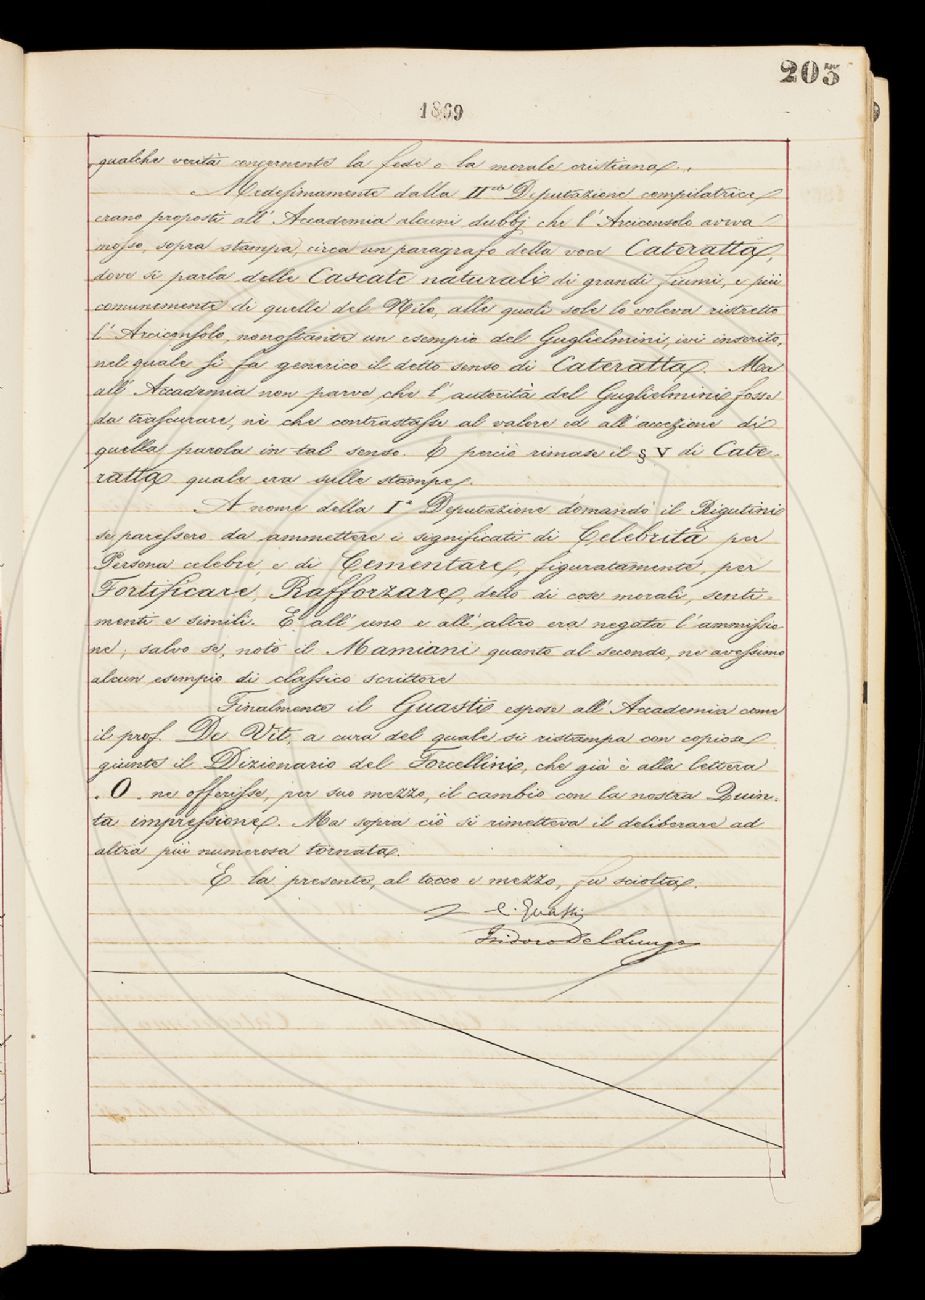 203
1869
qualche verità concernente la fede o la morale cristiana.
Medesimamente dalla IIda Deputazione compilatrice
erano proposti all' Accademia alcuni dubbj che l' Arciconsolo aveva
mosso, sopra stampa, circa un paragrafo della voce Cateratta,
dove si parla delle Cascate naturali di grandi fiumi, e più
comunemente di quelle del Nilo, alle quali sole lo voleva ristretto
l' Arciconsolo, nonostante un esempio del Guglielmini, ivi inserito,
nel quale si fa generico il detto senso di Cateratta. Ma
all' Accademia non parve che l' autorità del Guglielmini fosse
da trascurare, nè che contrastasse al valore ed all' accezione di
quella parola in tal senso. E perciò rimase il § V di Cate-
ratta quale era sulle stampe.
A nome della Iª Deputazione domandò il Rigutini
se paressero da ammettere i significati di Celebrità per
Persona celebre, e di Cementare, figuratamente, per
Fortificare, Rafforzare, detto di cose morali, senti-
menti e simili. E all' uno e all' altro era negata l' ammissio
ne, salvo se, notò il Mamiani quanto al secondo, ne avessimo
alcun esempio di classico scrittore
Finalmente il Guasti espose all' Accademia come
il prof. De Vit, a cura del quale si ristampa con copiose
giunte il Dizionario del Forcellini, che già è alla lettera
. O . ne offerisse, per suo mezzo, il cambio con la nostra Quin-
ta impressione. Ma sopra ciò si rimetteva il deliberare ad
altra più numerosa tornata.
E la presente, al tocco e mezzo, fu sciolta.
C. Guasti
Isidoro Del Lungo